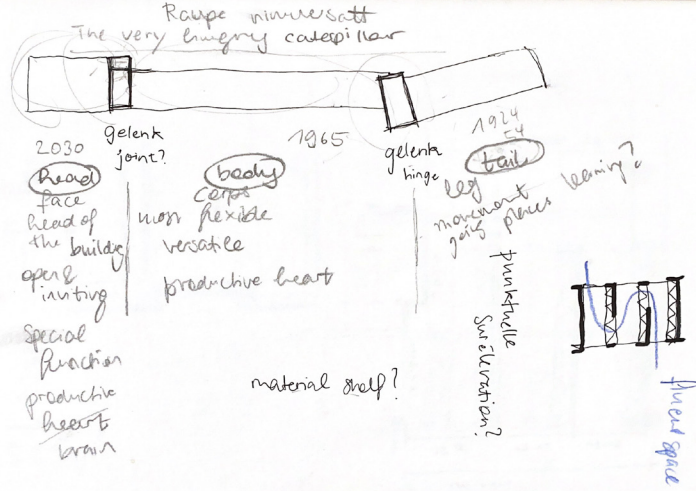 Raupe nimmersatt
The very hungry caterpillar
gelenk
joint?
1965
gelenk
hinge
1924
54
2030
head
face
head of
the building
open &
inviting
special
function
productive
heart
brain
body
corps
most flexible
versatile
productive heart
tail
leg
movement
going places
learning?
punktuelle
Surélévation?
material shelf?
fluent space